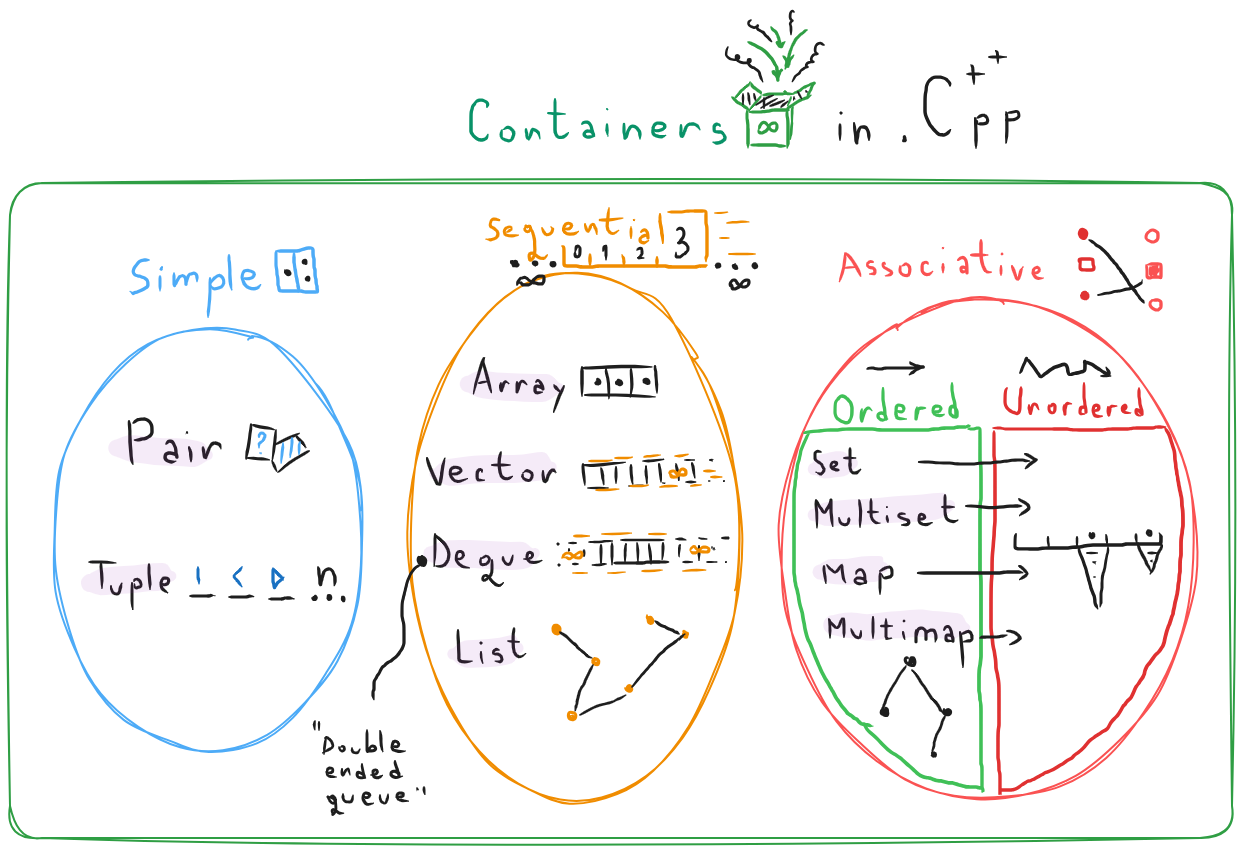 Containers ∞ in .Cpp++
Simple
Pair ?
Tuple ! < ▷ n ...
Sequential 0 1 2 3
∞ ∞
Array
Vector ∞
Deque ∞ ∞
List
"Double
ended
queue"
Associative
Ordered
Set
Multiset
Map
Multimap
Unordered